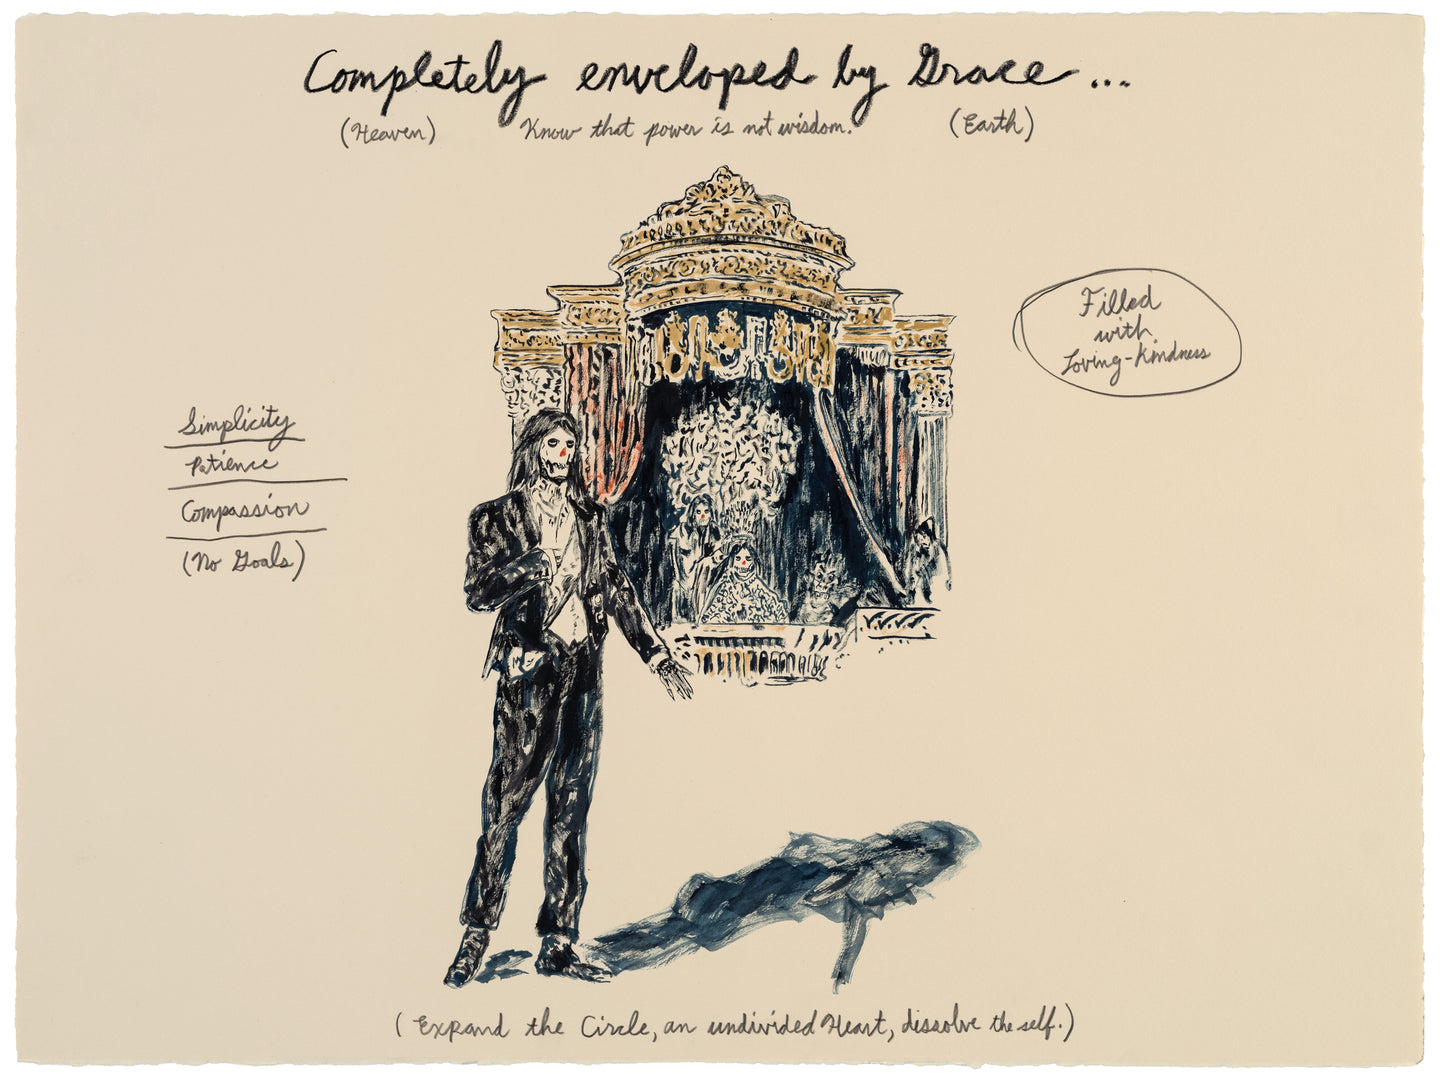 Completely enveloped by Grace...
(Heaven) Know that power is not wisdom. (Earth)
Filled
with
Loving-Kindness
Simplicity
Patience
Compassion
(No Goals)
(Expand the Circle, an undivided Heart, dissolve the self.)